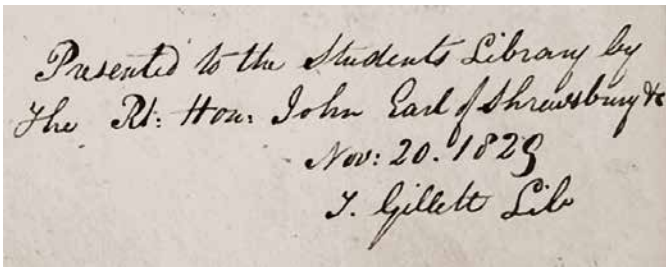 Presented to the Students Library by
The Rt: Hon: John Earl of Shrewsbury &c
Nov: 20. 1829
T. Gillett Lib